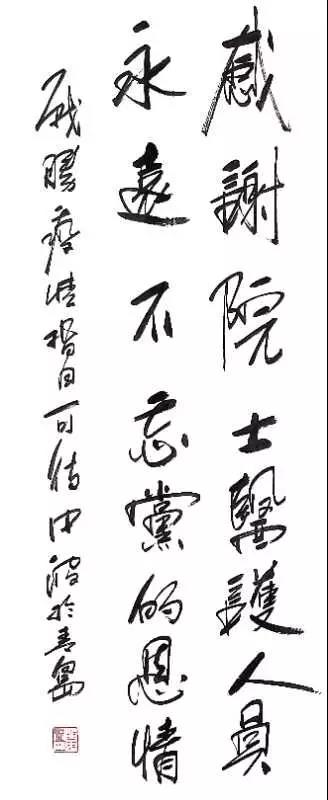 感謝院士醫護人員
永遠不忘黨的恩情
战勝疫情指日可待中波於青島